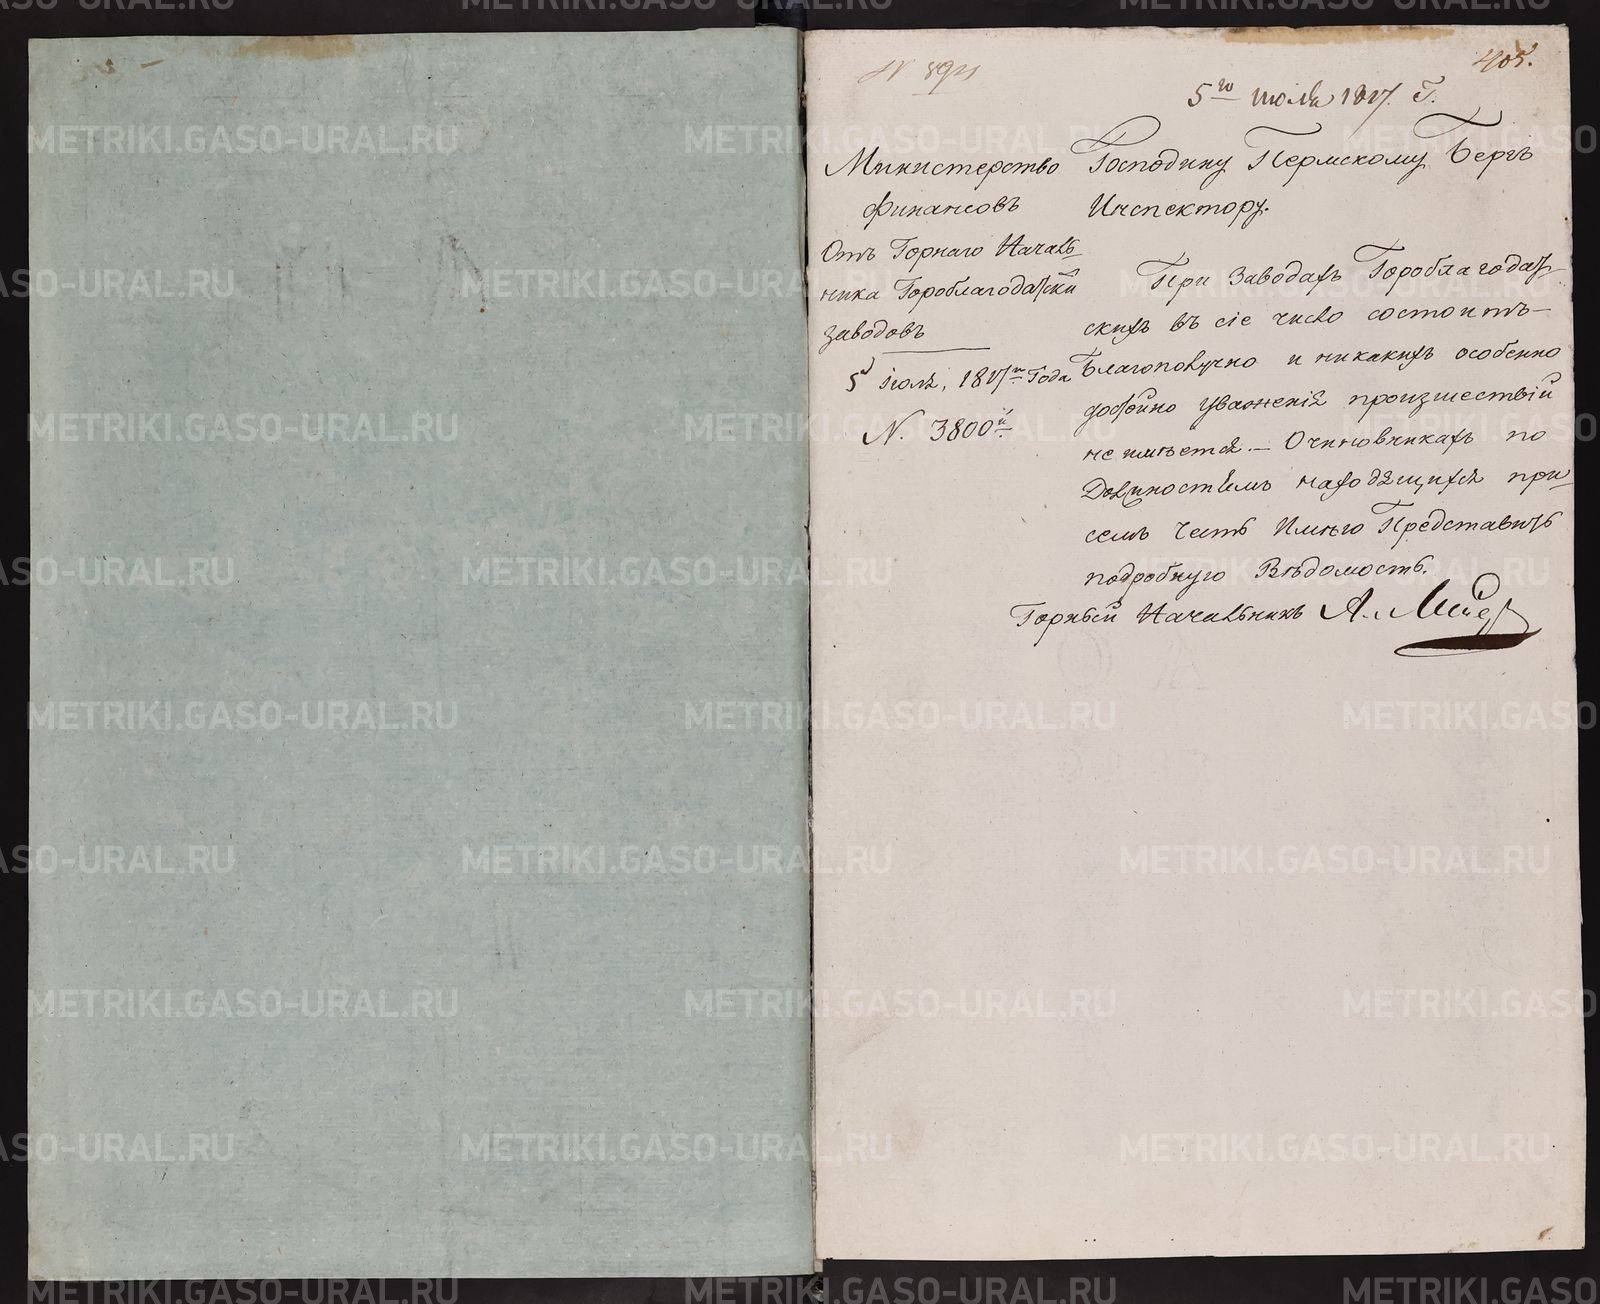 405.
5го июля 1817. Г.
Министерство
Финансовъ
Отъ Горнаго Началь
ника Гороблагодатски
заводовъ
5 Іюля, 1817го Года
N. 3800й
Господину Пермскому Бергъ
Инспектору.
При Заводахъ Гороблагодат
скихъ въ сіе число состоитъ
благополучно и никакихъ особенно
достойно уваженія произшествій
не имѣется. — О чиновникахъ по
Должностямъ находящихся при
семъ честь Имѣю Представить
подробную Вѣдомость.
Горный Начальникъ А.
METRIKI.GASO-URAL.RU